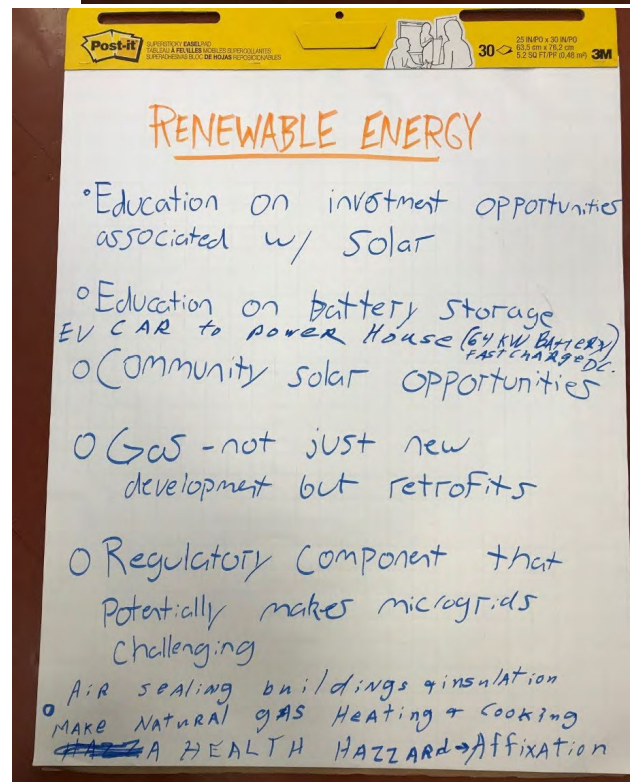 Post-it
SUPERSTICKY EASEL PAD
TABLEAU À FEUILLES MOBILES SUPERCOLLANTES
SUPERADHESIVAS BLOC DE HOJAS REPOSICIONABLES
30
25 IN/PO x 30 IN/PO
63,5 cm x 76,2 cm
5.2 SQ FT/PI² (0,48 m²)
3M
RENEWABLE ENERGY
°Education on invstment opportunities
associated w/ Solar
°Education on battery storage
EV CAR to power House (64 KW BATTERY)
FAST CHARGE DC.
o Community solar opportunities
o Gas - not just new
development but retrofits
o Regulatory Component that
Potentially makes microgrids
challenging
AIR SEALING buildings & insulation
° MAKE NATURAL gAS HEATING & COOKING
A HEALTH HAZZARD→AFFIXATION